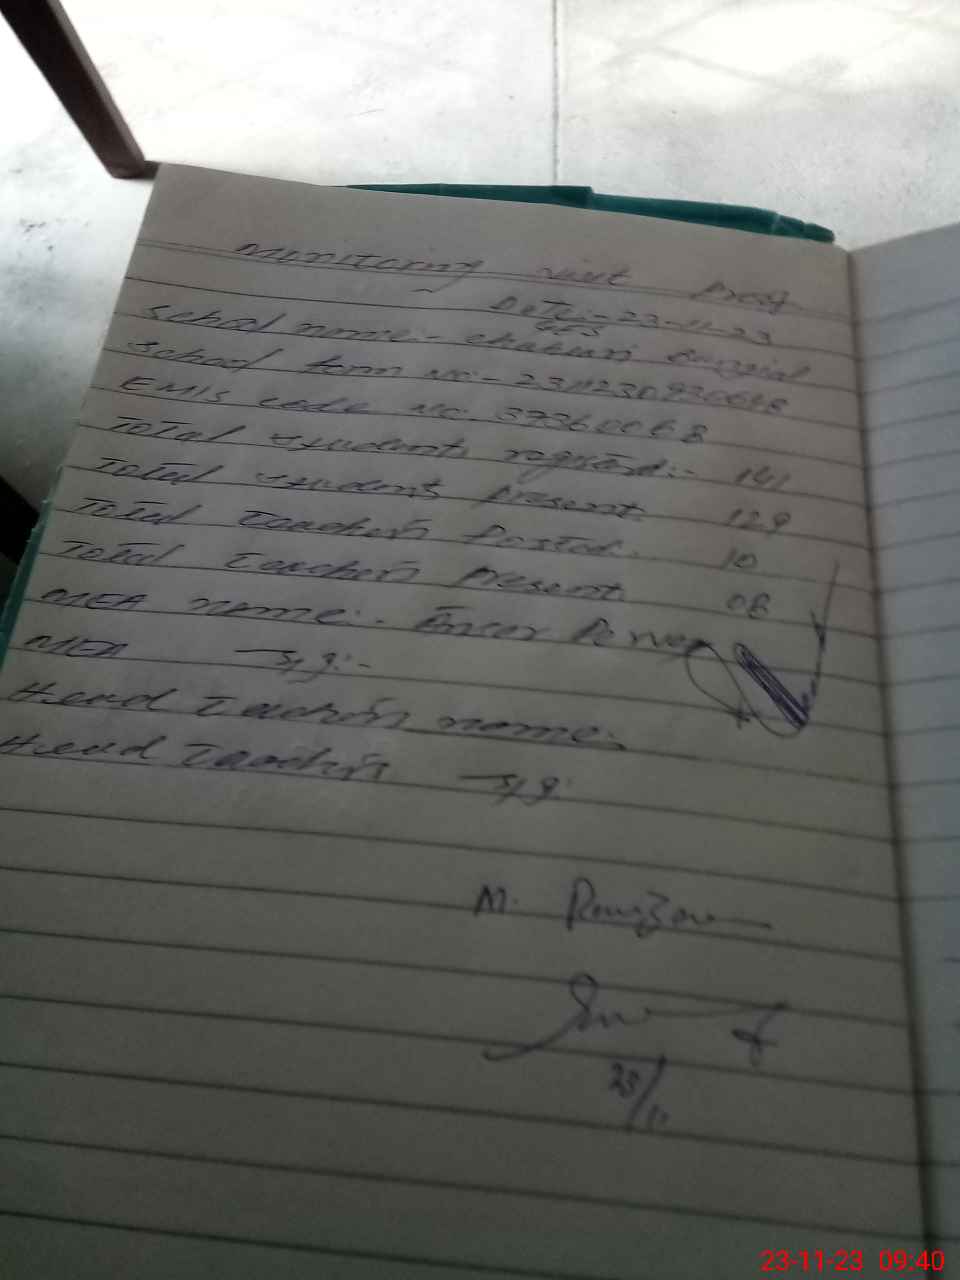 Monitoring visit Prof
Date:- 23-11-23
GPS
School name:-
School form No:-
EMIS code No. 37360068
Total students registerd:- 141
Total students present. 129
Total Teachers Posted. 10
Total Teachers present 08
MEA name:-
MEA sig:-
Head Teacher name:
Head Teacher sig:
M. Ramzan
23/11
23-11-23 09:40